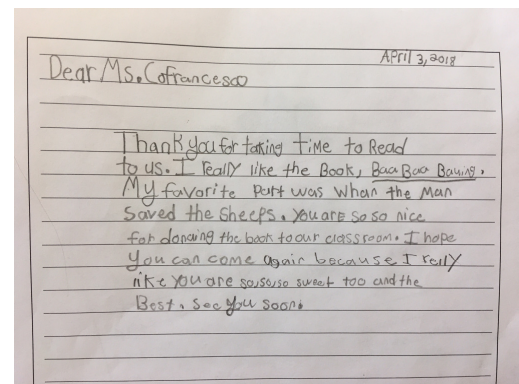 April 3, 2018
Dear Ms. Cofrancesco
Thank you for taking time to Read
to us. I really like the Book, Baa Baa
My favorite part was whan the Man
Saved the Sheeps. You are so so nice
for donaing the book to our classroom. I hope
You can come again because I relly
like you are so,so,so sweet too and the
Best. See you soon.